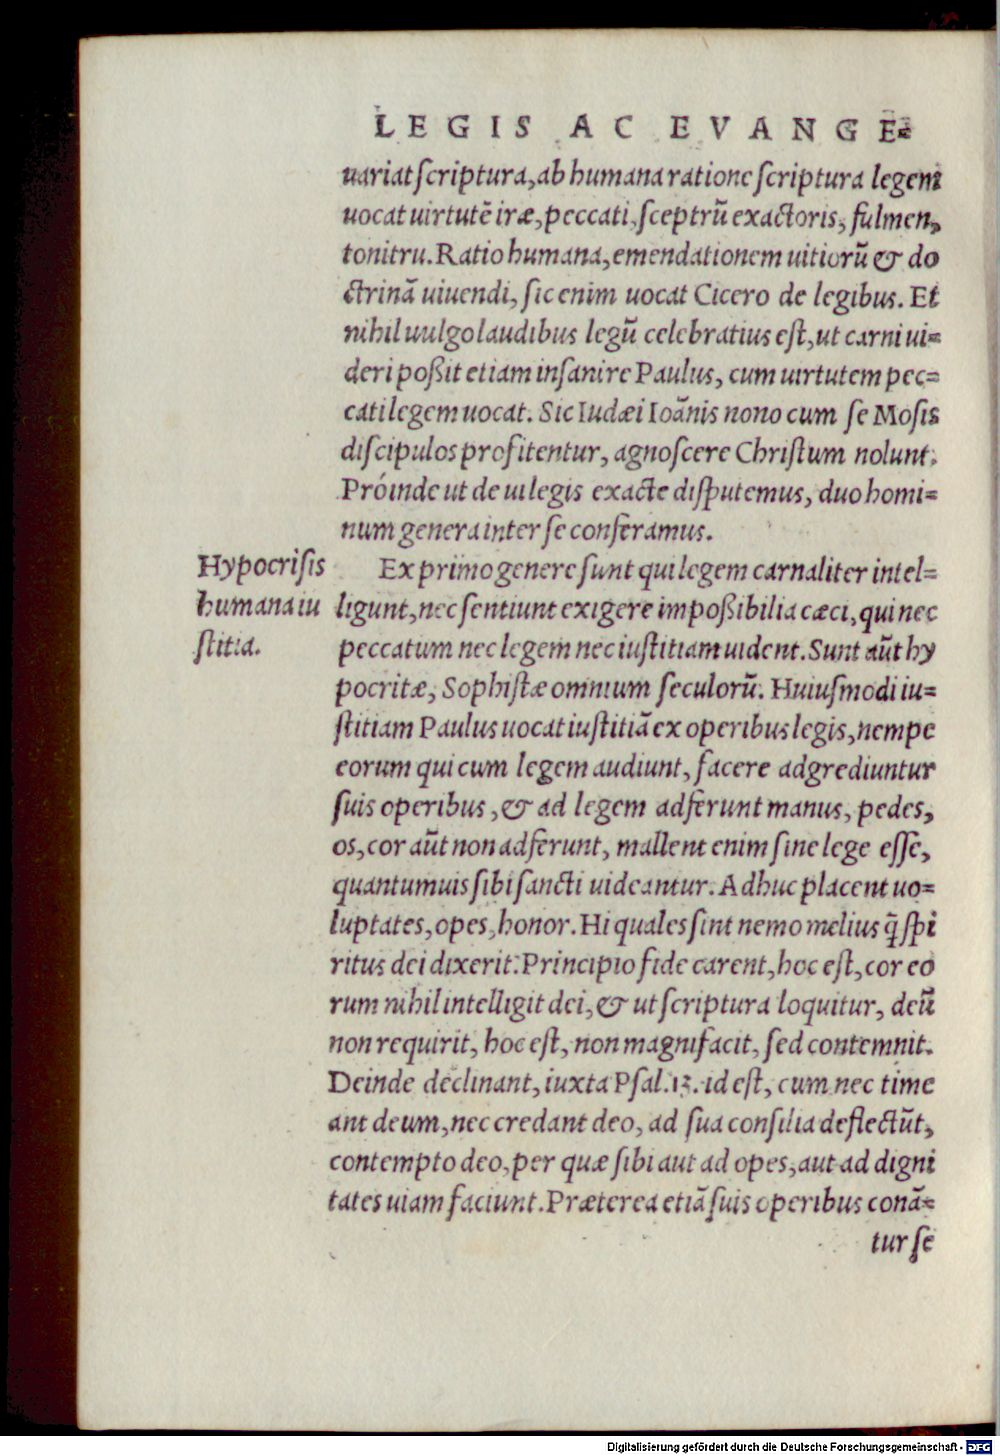 LEGIS AC EVANGE⸗
uariat ſcriptura, ab humana ratione ſcriptura legem
uocat uirtutē iræ, peccati, ſceptrū exactoris, fulmen,
tonitru. Ratio humana, emendationem uitiorū & do
ctrinā uiuendi, ſic enim uocat Cicero de legibus. Et
nihil uulgo laudibus legū celebratius eſt, ut carni ui⸗
deri poßit etiam inſanire Paulus, cum uirtutem pec⸗
cati legem uocat. Sic Iudæi Ioānis nono cum ſe Moſis
diſcipulos profitentur, agnoſcere Chriſtum nolunt.
Próinde ut de ui legis exacte diſputemus, duo homi⸗
num genera inter ſe conferamus.
Hypocriſis
humana iu
ſtitia.
Ex primo genere ſunt qui legem carnaliter intel⸗
ligunt, nec ſentiunt exigere impoßibilia cæci, qui nec
peccatum nec legem nec iuſtitiam uident. Sunt aūt hy
pocritæ, Sophiſtæ omnium ſeculorū. Huiuſmodi iu⸗
ſtitiam Paulus uocat iuſtitiā ex operibus legis, nempe
eorum qui cum legem audiunt, facere adgrediuntur
ſuis operibus, & ad legem adferunt manus, pedes,
os, cor aūt non adferunt, mallent enim ſine lege eſſe,
quantumuis ſibi ſancti uideantur. Adhuc placent uo⸗
luptates, opes, honor. Hi quales ſint nemo melius q̄ ſpi
ritus dei dixerit. Principio fide carent, hoc eſt, cor eo
rum nihil intelligit dei, & ut ſcriptura loquitur, deū
non requirit, hoc eſt, non magnifacit, ſed contemnit.
Deinde declinant, iuxta Pſal. 13. id eſt, cum nec time
ant deum, nec credant deo, ad ſua conſilia deflectūt,
contempto deo, per quæ ſibi aut ad opes, aut ad digni
tates uiam faciunt. Præterea etiā ſuis operibus conā⸗
tur ſe
Digitalisierung gefördert durch die Deutsche Forschungsgemeinschaft - DFG